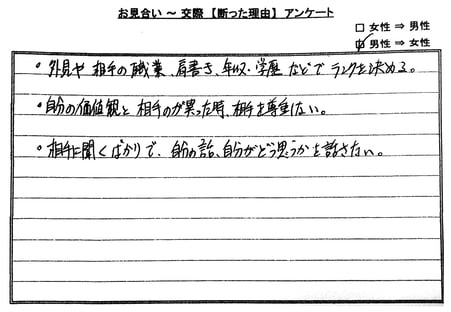 お見合い ～ 交際 【断った理由】 アンケート
□ 女性 ⇒ 男性
☑ 男性 ⇒ 女性
・外見や相手の職業、肩書き、年収・学歴などでランクを決める。
・自分の価値観と相手のが異った時、相手を尊重しない。
・相手に聞くばかりで、自分の話、自分がどう思うかを話さない。